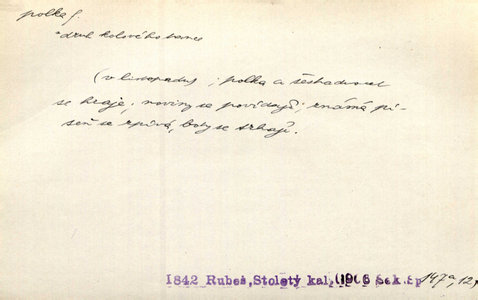 polka f.
*druh kolového tance
(v listopadu) ; polka a šestnadvacet
se hraje, noviny se povídají; známá pí-
seň se zpívá, boty se trhají.
1842 Rubeš, Stoletý kal. (1906 Sek. Sp 147a, 12.